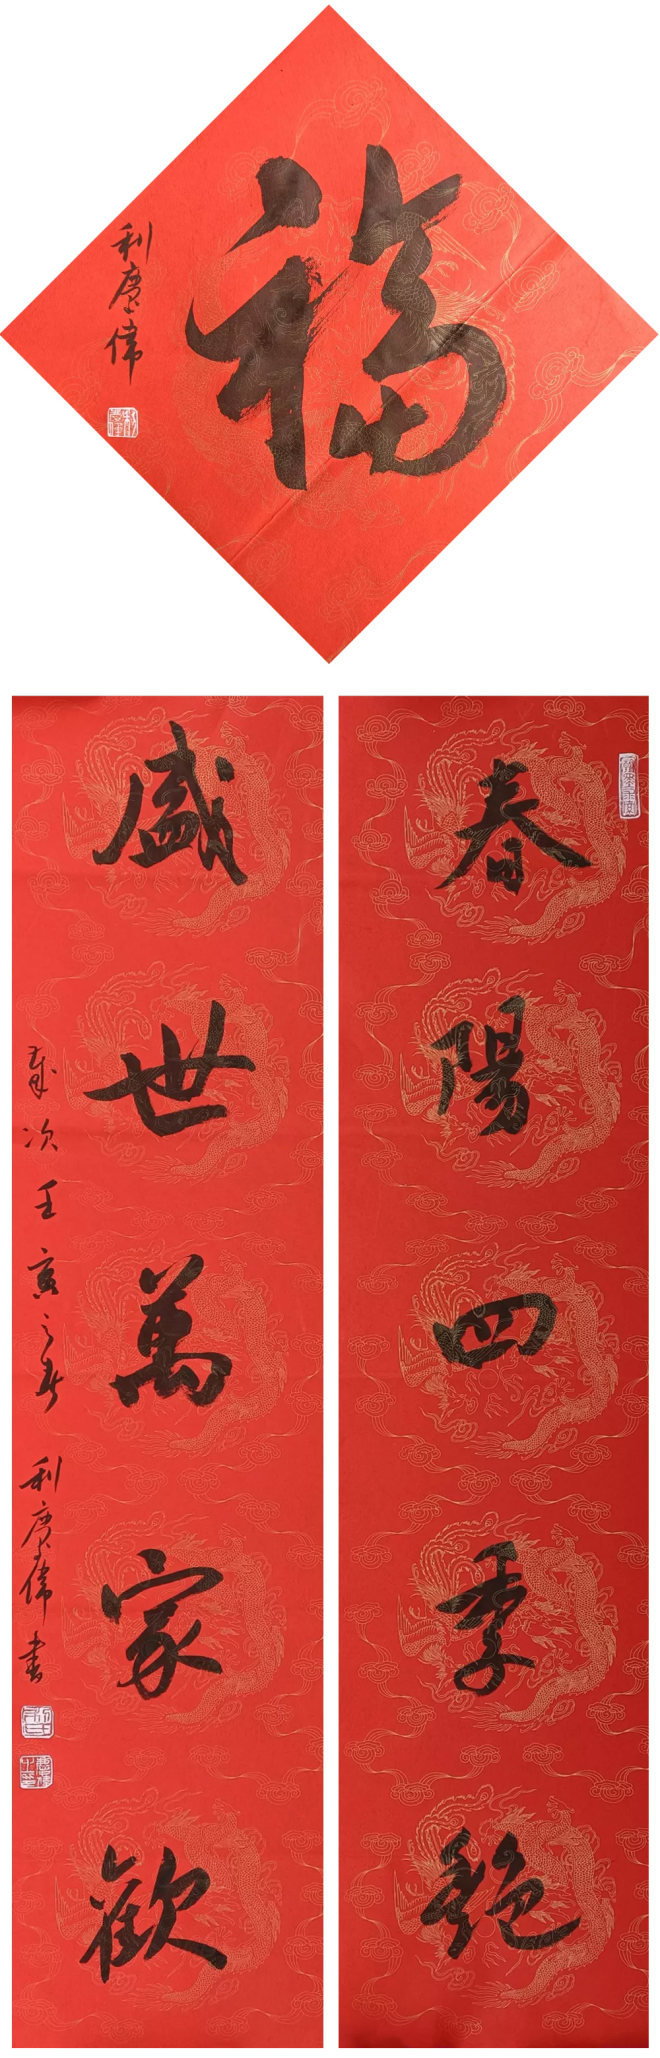 福
利賡偉
春陽四季艷
盛世萬家歡
歲次壬寅之春 利賡偉書